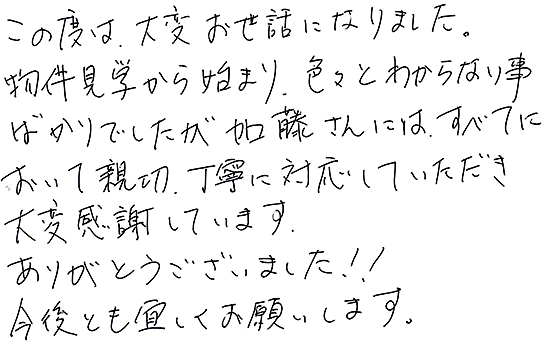 この度は、大変お世話になりました。
物件見学から始まり、色々とわからない事
ばかりでしたが加藤さんには、すべてに
おいて親切、丁寧に対応していただき
大変感謝しています。
ありがとうございました!!
今後とも宜しくお願いします。